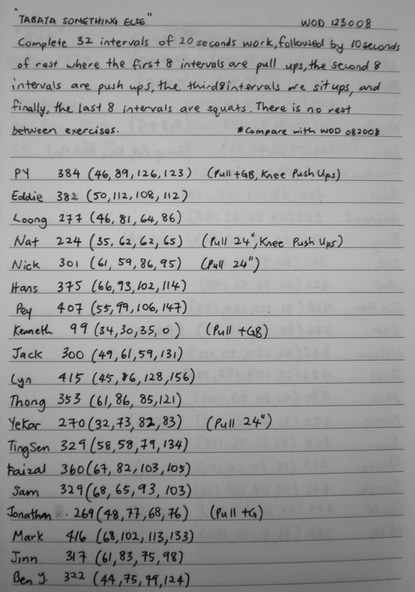 "TABATA SOMETHING ELSE" WOD 123008
Complete 32 intervals of 20 seconds work, followed by 10 seconds
of rest where the first 8 intervals are pull ups, the second 8
intervals are push ups, the third 8 intervals are sit ups, and
finally, the last 8 intervals are squats. There is no rest
between exercises. *Compare with WOD 082008
PY 384 (46, 89, 126, 123) (Pull +GB, Knee Push Ups)
Eddie 382 (50, 112, 108, 112)
Loong 277 (46, 81, 64, 86)
Nat 224 (35, 62, 62, 65) (Pull 24", Knee Push Ups)
Nick 301 (61, 59, 86, 95) (Pull 24")
Hans 375 (66, 93, 102, 114)
Pey 407 (55, 99, 106, 147)
Kenneth 99 (34, 30, 35, 0) (Pull +GB)
Jack 300 (49, 61, 59, 131)
Lyn 415 (45, 86, 128, 156)
Thong 353 (61, 86, 85, 121)
YeKar 270 (32, 73, 82, 83) (Pull 24")
TingSen 329 (58, 58, 79, 134)
Faizal 360 (67, 82, 103, 105)
Sam 329 (68, 65, 93, 103)
Jonathan 269 (48, 77, 68, 76) (Pull +G)
Mark 416 (68, 102, 113, 133)
Jinn 317 (61, 83, 75, 98)
Ben Y. 322 (44, 75, 79, 124)